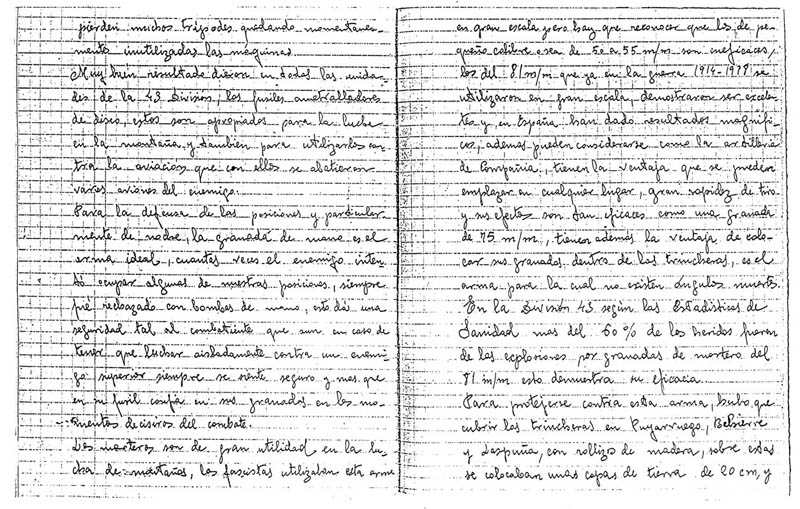 pierden muchos trípodes quedando momentanea-
mente inutilizadas las máquinas.
Muy buen resultado dieron en todas las unida-
des de la 43 División, los fusiles ametralladores
de disco, estos son apropiados para la lucha
en la montaña, y tambien para utilizarlos con-
tra la aviación que con ellos se abatieron
varios aviones del enemigo.
Para la defensa de las posiciones y particular-
mente de noche, la granada de mano es el
arma ideal, cuantas veces el enemigo inten-
tó ocupar algunas de nuestras posiciones, siempre
fué rechazado con bombas de mano, esto dió una
seguridad tal al combatiente que aun en caso de
tener que luchar aisladamente contra un enemi-
go superior siempre se siente seguro y mas que
en su fusil confia en sus granadas en los mo-
mentos decisivos del combate.
Los morteros son de gran utilidad en la lu-
cha de montañas, los fascistas utilizaban esta arma
en gran escala pero hay que reconocer que los de pe-
queño calibre o sea de 50 a 55 m/m son ineficaces,
los del 81 m/m que ya en la guerra 1914-1918 se
utilizaron en gran escala, demostraron ser excelen-
tes y en España han dado resultados magnífi-
cos, ademas pueden considerarse como la artilleria
de Compañia, tienen la ventaja que se pueden
emplazar en cualquier lugar, gran rapidez de tiro
y sus efectos son tan eficaces como una granada
de 75 m/m, tienen además la ventaja de colo-
car sus granadas dentro de las trincheras, es el
arma para la cual no existen ángulos muertos.
En la División 43 según las Estadísticas de
Sanidad mas del 60% de los heridos fueron
de las explosiones por granadas de mortero del
81 m/m esto demuestra su eficacia.
Para protejerse contra esta arma, hubo que
cubrir las trincheras en Puyarruego, Belsierre
y Laspuña, con rollizos de madera, sobre estas
se colocaban unas capas de tierra de 20 cm, y